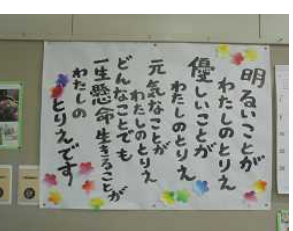 明るいことが
わたしのとりえ
優しいことが
わたしのとりえ
元気なことが
わたしのとりえ
どんなことでも
一生懸命生きることが
わたしの
とりえです